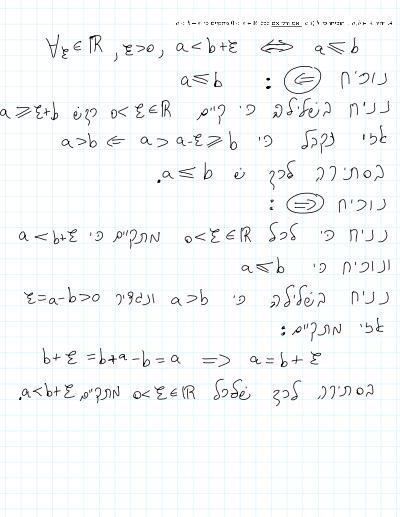 ∀ε∈ℝ, ε>0, a<b+ε ⟺ a≤b
נוכיח (⇐) : a≤b
נניח בשלילה כי קיים 0<ε∈ℝ כך ש a≥ε+b
אזי נקבל כי a>b ⇐ a>a-ε≥b
בסתירה לכך ש a≤b.
נוכיח (⇒) :
נניח כי לכל 0<ε∈ℝ מתקיים כי a<b+ε
ונוכיח כי a≤b
נניח בשלילה כי a>b ונגדיר ε=a-b>0
אזי מתקיים:
b+ε=b+a-b=a ⟹ a=b+ε
בסתירה לכך שלכל 0<ε∈ℝ מתקיים a<b+ε.